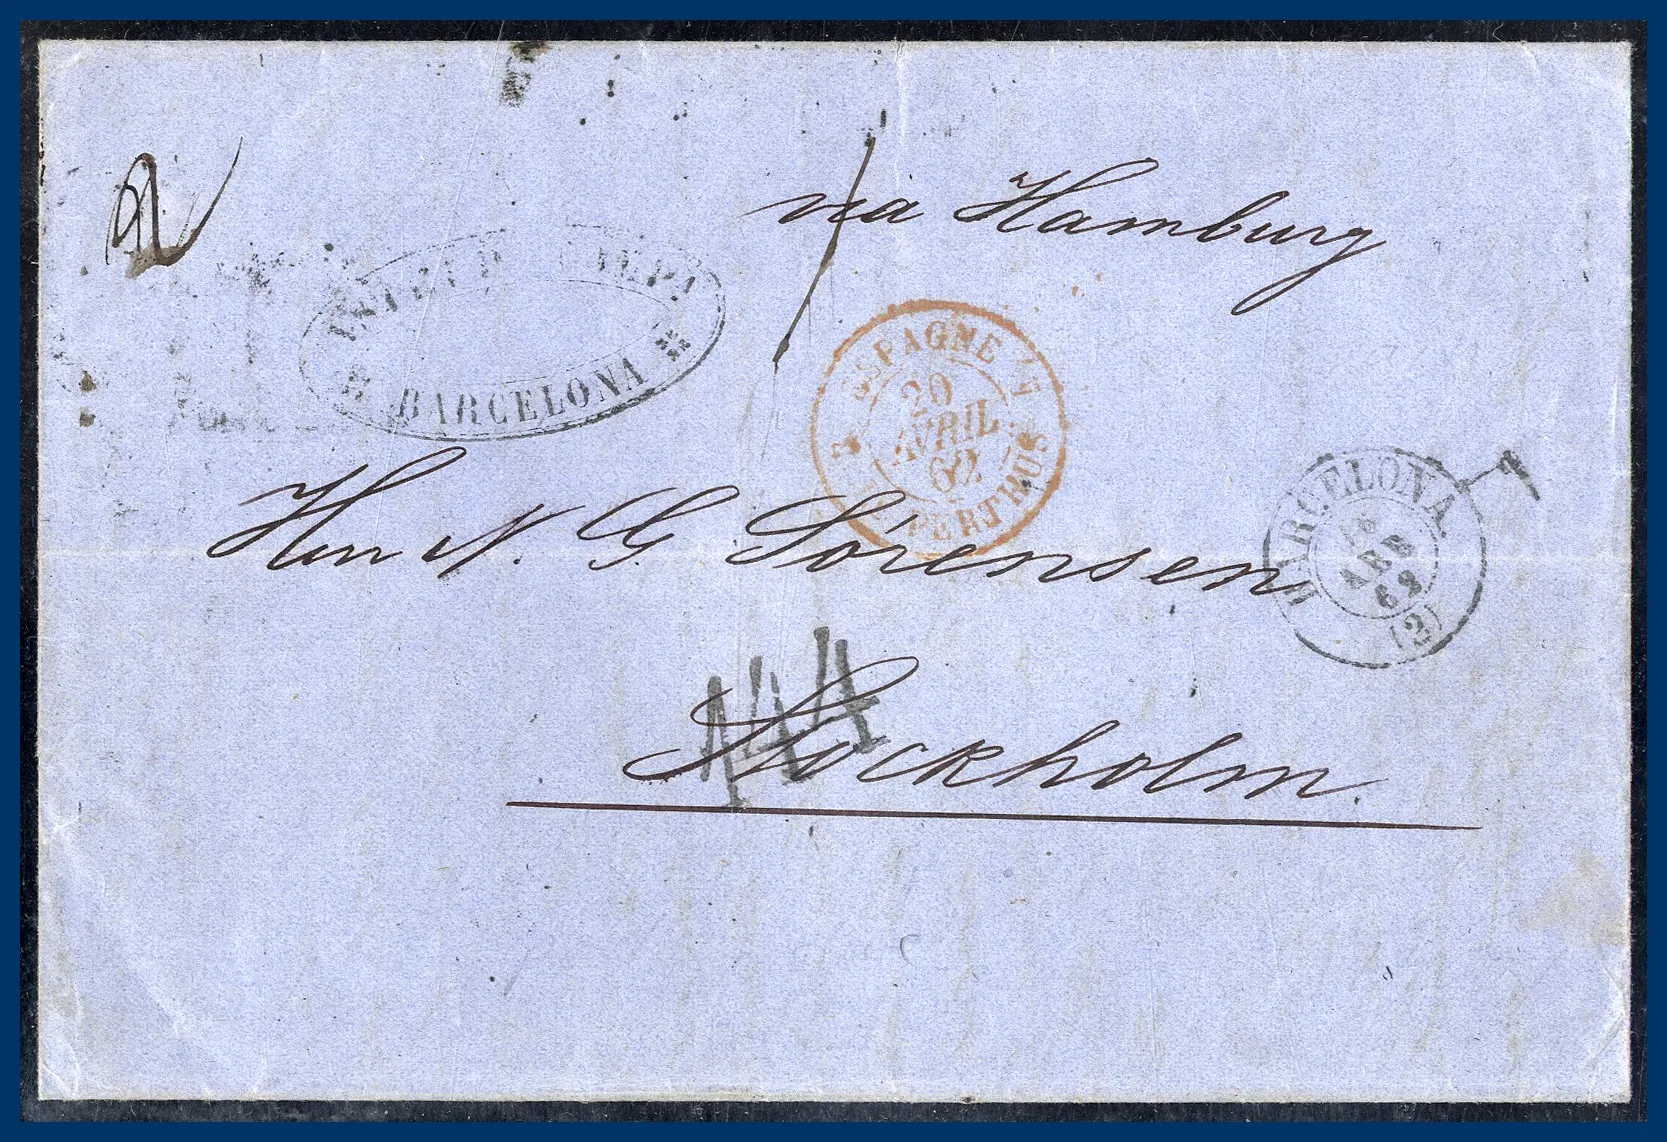 2
via Hamburg
BARCELONA
ESPAGNE
20
AVRIL
62
LE PERTHUS
BARCELONA
ABR
62
(2)
Herr N. G. Sörensen
144
Stockholm.